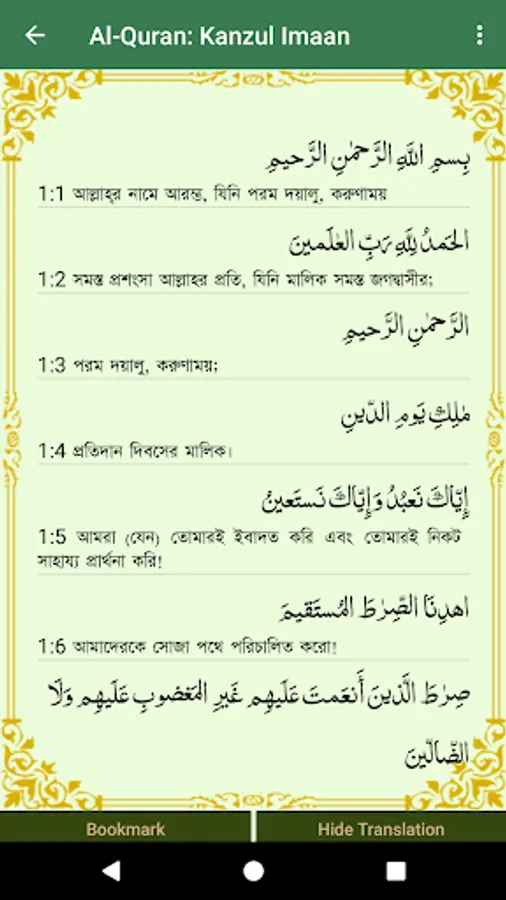 Al-Quran: Kanzul Imaan
بِسمِ اللَّهِ الرَّحمٰنِ الرَّحيمِ
1:1 আল্লাহ্‌র নামে আরম্ভ, যিনি পরম দয়ালু, করুণাময়
الحَمدُ لِلَّهِ رَبِّ العٰلَمينَ
1:2 সমস্ত প্রশংসা আল্লাহর প্রতি, যিনি মালিক সমস্ত জগদ্বাসীর;
الرَّحمٰنِ الرَّحيمِ
1:3 পরম দয়ালু, করুণাময়;
مٰلِكِ يَومِ الدّينِ
1:4 প্রতিদান দিবসের মালিক।
إِيّاكَ نَعبُدُ وَإِيّاكَ نَستَعينُ
1:5 আমরা (যেন) তোমারই ইবাদত করি এবং তোমারই নিকট
সাহায্য প্রার্থনা করি!
اهدِنَا الصِّرٰطَ المُستَقيمَ
1:6 আমাদেরকে সোজা পথে পরিচালিত করো!
صِرٰطَ الَّذينَ أَنعَمتَ عَلَيهِم غَيرِ المَغضوبِ عَلَيهِم وَلَا
الضّالّينَ
Bookmark
Hide Translation